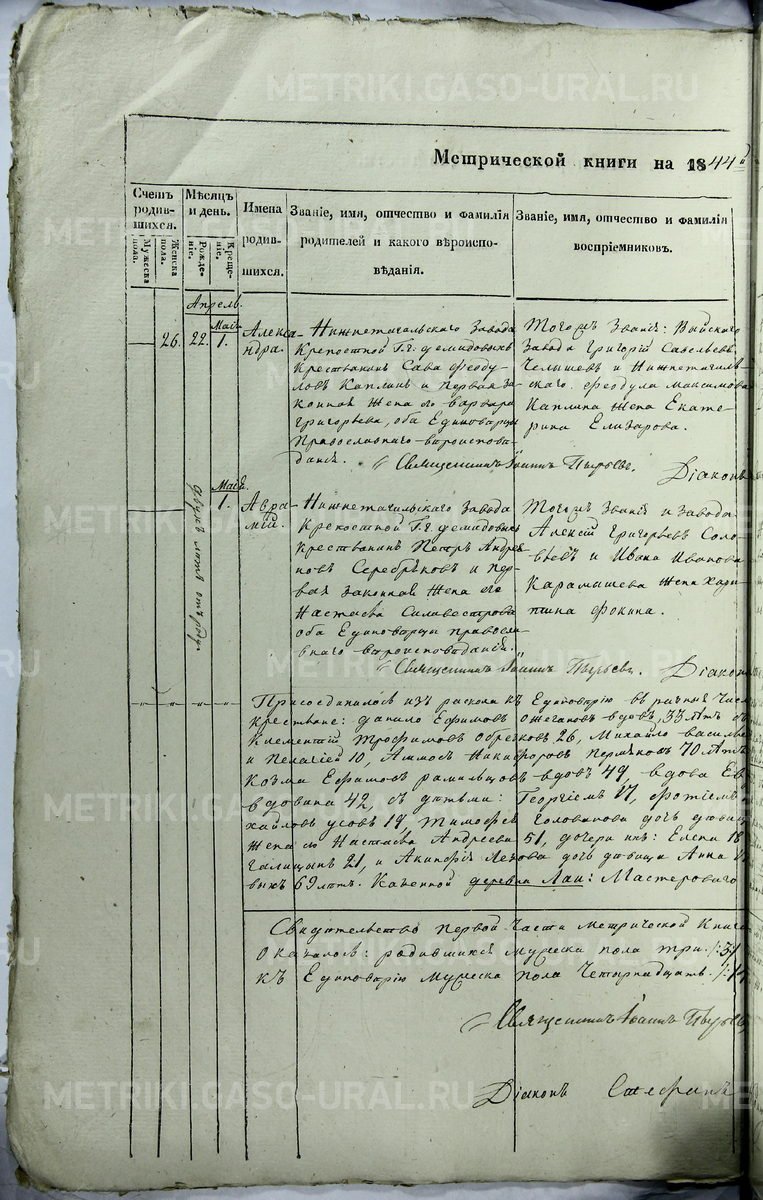 METRIKI.GASO-URAL.RU
Метрической книги на 1844й
Счетъ родившихся.
Мужеска пола.
Женска пола.
Мѣсяцъ и день.
Рожденіе.
Крещеніе.
Имена родившихся.
Званіе, имя, отчество и фамилія родителей и какого вѣроисповѣданія.
Званіе, имя, отчество и фамилія воспріемниковъ.
Апрель.
Маія
26.
22.
1.
Алекса-
ндра.
Нижнетагильскаго Завода
Крепостной Г.г. Демидовыхъ
Крестьянинъ Сава Феоду-
ловъ Каплинъ и первая за-
конная жена его Варвара
Григорьева, оба Единоверцы
Православнаго вероиспове-
данія.
Тогожъ Званія: Выйскаго
Завода Григорій Савельевъ
Челышевъ и Нижнетагиль-
скаго Феодула Максимова
Каплина жена Екате-
рина Елизарова.
Священникъ Іоаннъ Пырьевъ. Діаконъ
Маія.
1.
Авра-
мій.
Нижнетагильскаго Завода
Крепостной Г.г. Демидовыхъ
Крестьянинъ Петръ Андрея-
новъ Серебряковъ и пер-
вая законная жена его
Настасья Силивестрова
оба Единоверцы правосла-
внаго вероисповеданія.
Тогожъ Званія и Завода
Алексій Григорьевъ Соло-
вьевъ и Ивана Иванова
Карамышева жена Хари-
тина Фокина.
Священникъ Іоаннъ Пырьевъ. Діаконъ
Присоединилось изъ раскола къ Единоверію въ разные
Крестьяне: Данило Ефимовъ Ожегановъ вдовъ, 33 летъ
Климентій Трофимовъ 26, Михайло
и Пелагіей 10, Аммосъ Никифоровъ Пермяковъ 70 летъ
Козма Ефимовъ вдовъ 49, вдова
вдовина 42, съ детьми: Георгіемъ 17,
Усовъ 19, Тимофея Голованова дочь девица
жена его Настасья Андреева 51, дочери ихъ: Елена 18
21, и дочь девица Анна
69 летъ. Казенной деревни Лаи: Мастероваго
Свидетельство первой Части Метрической Книги
Оказалось: родившихся мужеска пола три
къ Единоверію мужеска пола Четырнадцать
Священникъ Іоаннъ Пырьевъ
Діаконъ Стефанъ